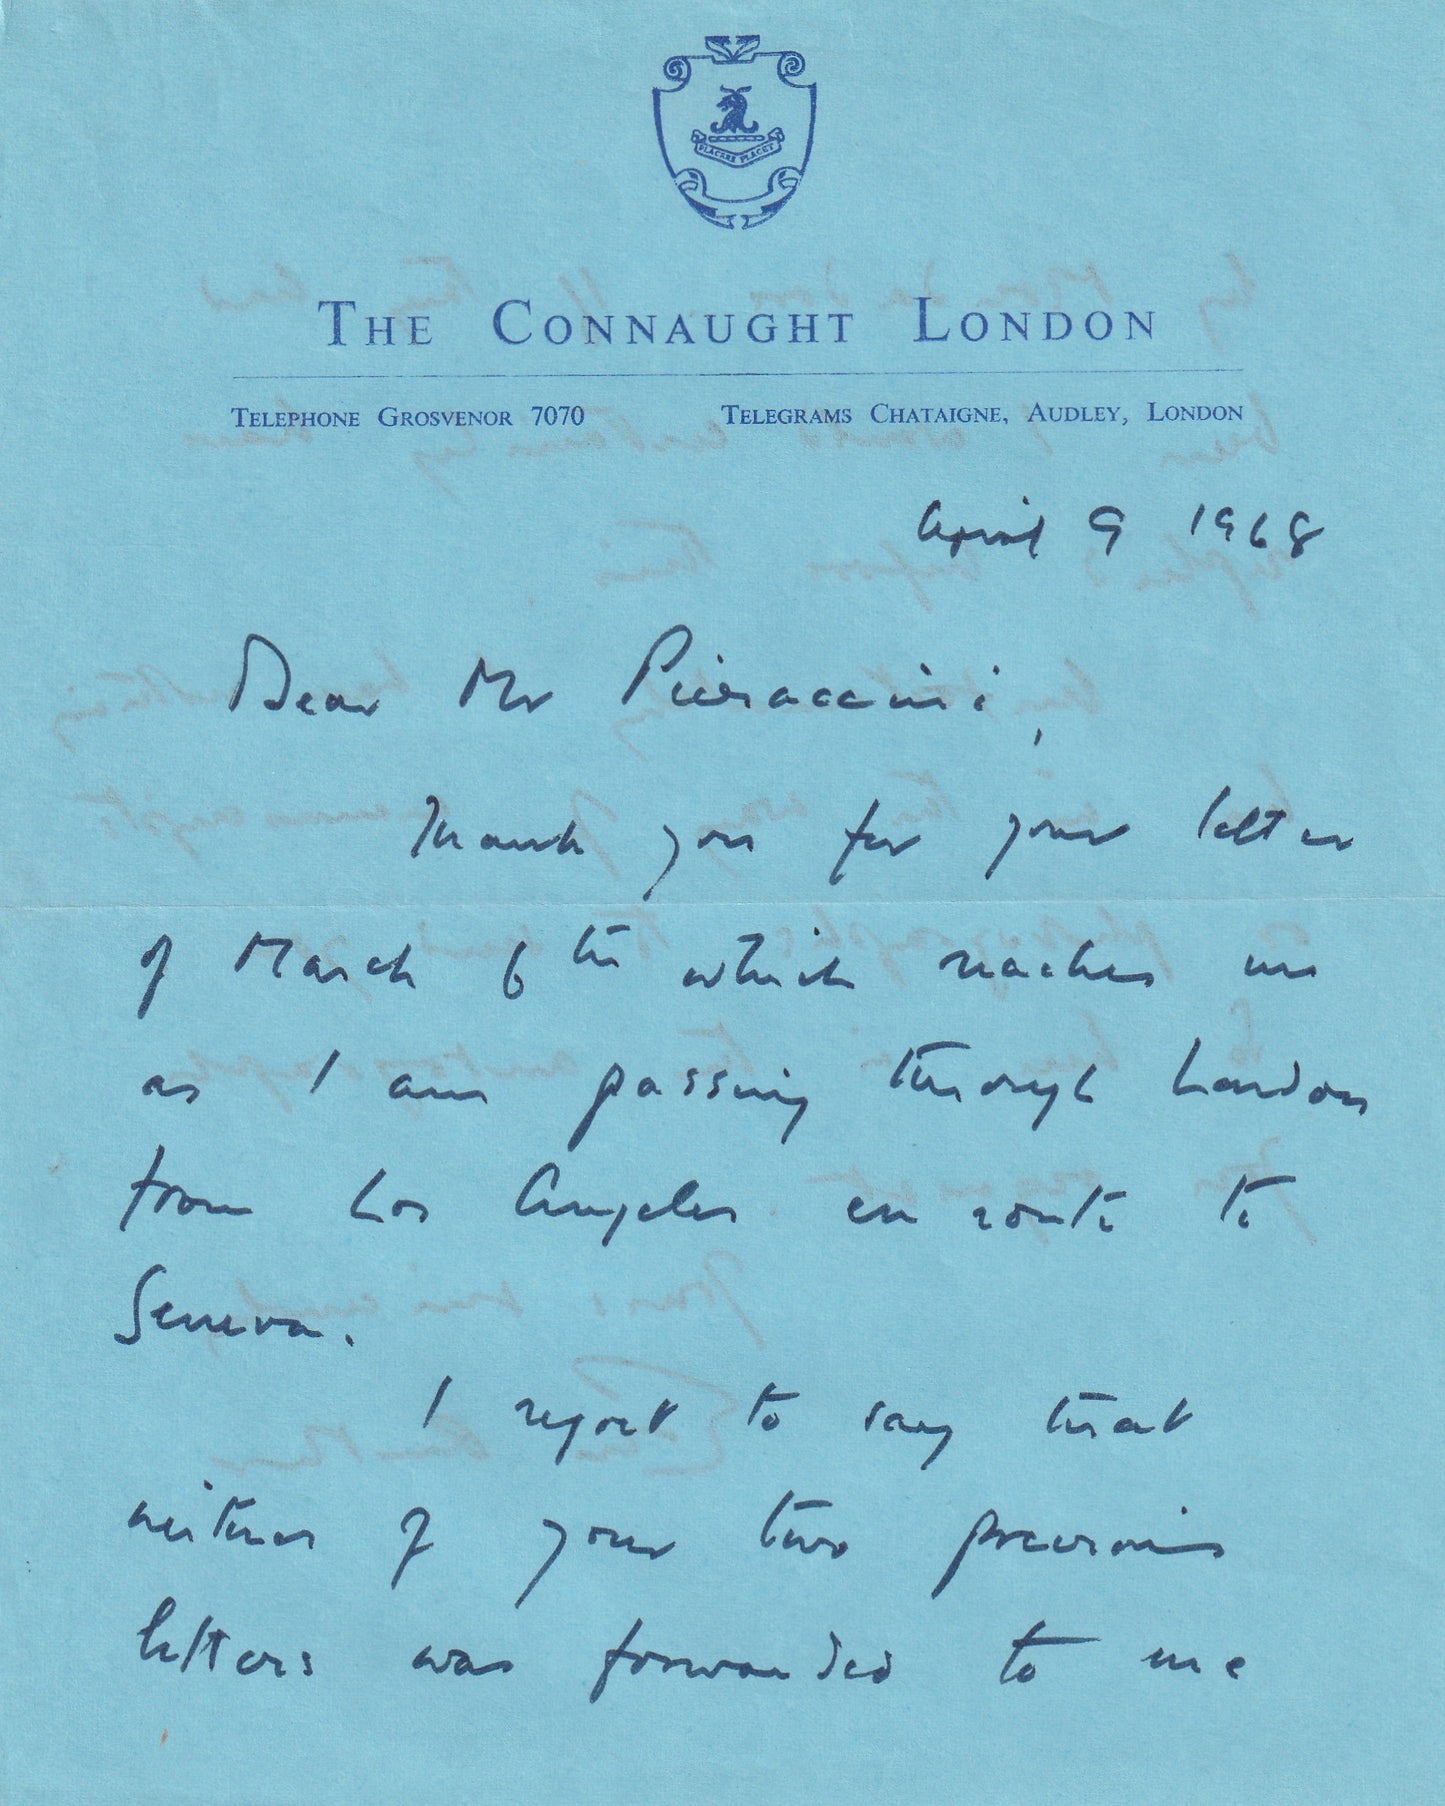 PLACERE PLACET
THE CONNAUGHT LONDON
TELEPHONE GROSVENOR 7070 TELEGRAMS CHATAIGNE, AUDLEY, LONDON
April 9 1968
Dear Mr Pieraccini,
Thank you for your letter
of March 6th which reaches me
as I am passing through London
from Los Angeles en route to
Geneva.
I regret to say that
neither of your two previous
letters was forwarded to me